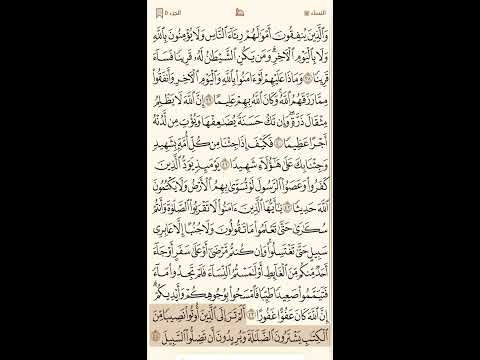 النساء
الجزء ٥
وَٱلَّذِينَ يُنفِقُونَ أَمۡوَٰلَهُمۡ رِئَآءَ ٱلنَّاسِ وَلَا يُؤۡمِنُونَ بِٱللَّهِ
وَلَا بِٱلۡيَوۡمِ ٱلۡأٓخِرِۗ وَمَن يَكُنِ ٱلشَّيۡطَٰنُ لَهُۥ قَرِينٗا فَسَآءَ
قَرِينٗا ٣٨ وَمَاذَا عَلَيۡهِمۡ لَوۡ ءَامَنُواْ بِٱللَّهِ وَٱلۡيَوۡمِ ٱلۡأٓخِرِ وَأَنفَقُواْ
مِمَّا رَزَقَهُمُ ٱللَّهُۚ وَكَانَ ٱللَّهُ بِهِمۡ عَلِيمًا ٣٩ إِنَّ ٱللَّهَ لَا يَظۡلِمُ
مِثۡقَالَ ذَرَّةٖۖ وَإِن تَكُ حَسَنَةٗ يُضَٰعِفۡهَا وَيُؤۡتِ مِن لَّدُنۡهُ
أَجۡرًا عَظِيمٗا ٤٠ فَكَيۡفَ إِذَا جِئۡنَا مِن كُلِّ أُمَّةِۭ بِشَهِيدٖ
وَجِئۡنَا بِكَ عَلَىٰ هَٰٓؤُلَآءِ شَهِيدٗا ٤١ يَوۡمَئِذٖ يَوَدُّ ٱلَّذِينَ
كَفَرُواْ وَعَصَوُاْ ٱلرَّسُولَ لَوۡ تُسَوَّىٰ بِهِمُ ٱلۡأَرۡضُ وَلَا يَكۡتُمُونَ
ٱللَّهَ حَدِيثٗا ٤٢ يَٰٓأَيُّهَا ٱلَّذِينَ ءَامَنُواْ لَا تَقۡرَبُواْ ٱلصَّلَوٰةَ وَأَنتُمۡ
سُكَٰرَىٰ حَتَّىٰ تَعۡلَمُواْ مَا تَقُولُونَ وَلَا جُنُبًا إِلَّا عَابِرِي
سَبِيلٍ حَتَّىٰ تَغۡتَسِلُواْۚ وَإِن كُنتُم مَّرۡضَىٰٓ أَوۡ عَلَىٰ سَفَرٍ أَوۡ جَآءَ
أَحَدٞ مِّنكُم مِّنَ ٱلۡغَآئِطِ أَوۡ لَٰمَسۡتُمُ ٱلنِّسَآءَ فَلَمۡ تَجِدُواْ مَآءٗ
فَتَيَمَّمُواْ صَعِيدٗا طَيِّبٗا فَٱمۡسَحُواْ بِوُجُوهِكُمۡ وَأَيۡدِيكُمۡۗ
إِنَّ ٱللَّهَ كَانَ عَفُوًّا غَفُورًا ٤٣ أَلَمۡ تَرَ إِلَى ٱلَّذِينَ أُوتُواْ نَصِيبٗا مِّنَ
ٱلۡكِتَٰبِ يَشۡتَرُونَ ٱلضَّلَٰلَةَ وَيُرِيدُونَ أَن تَضِلُّواْ ٱلسَّبِيلَ ٤٤